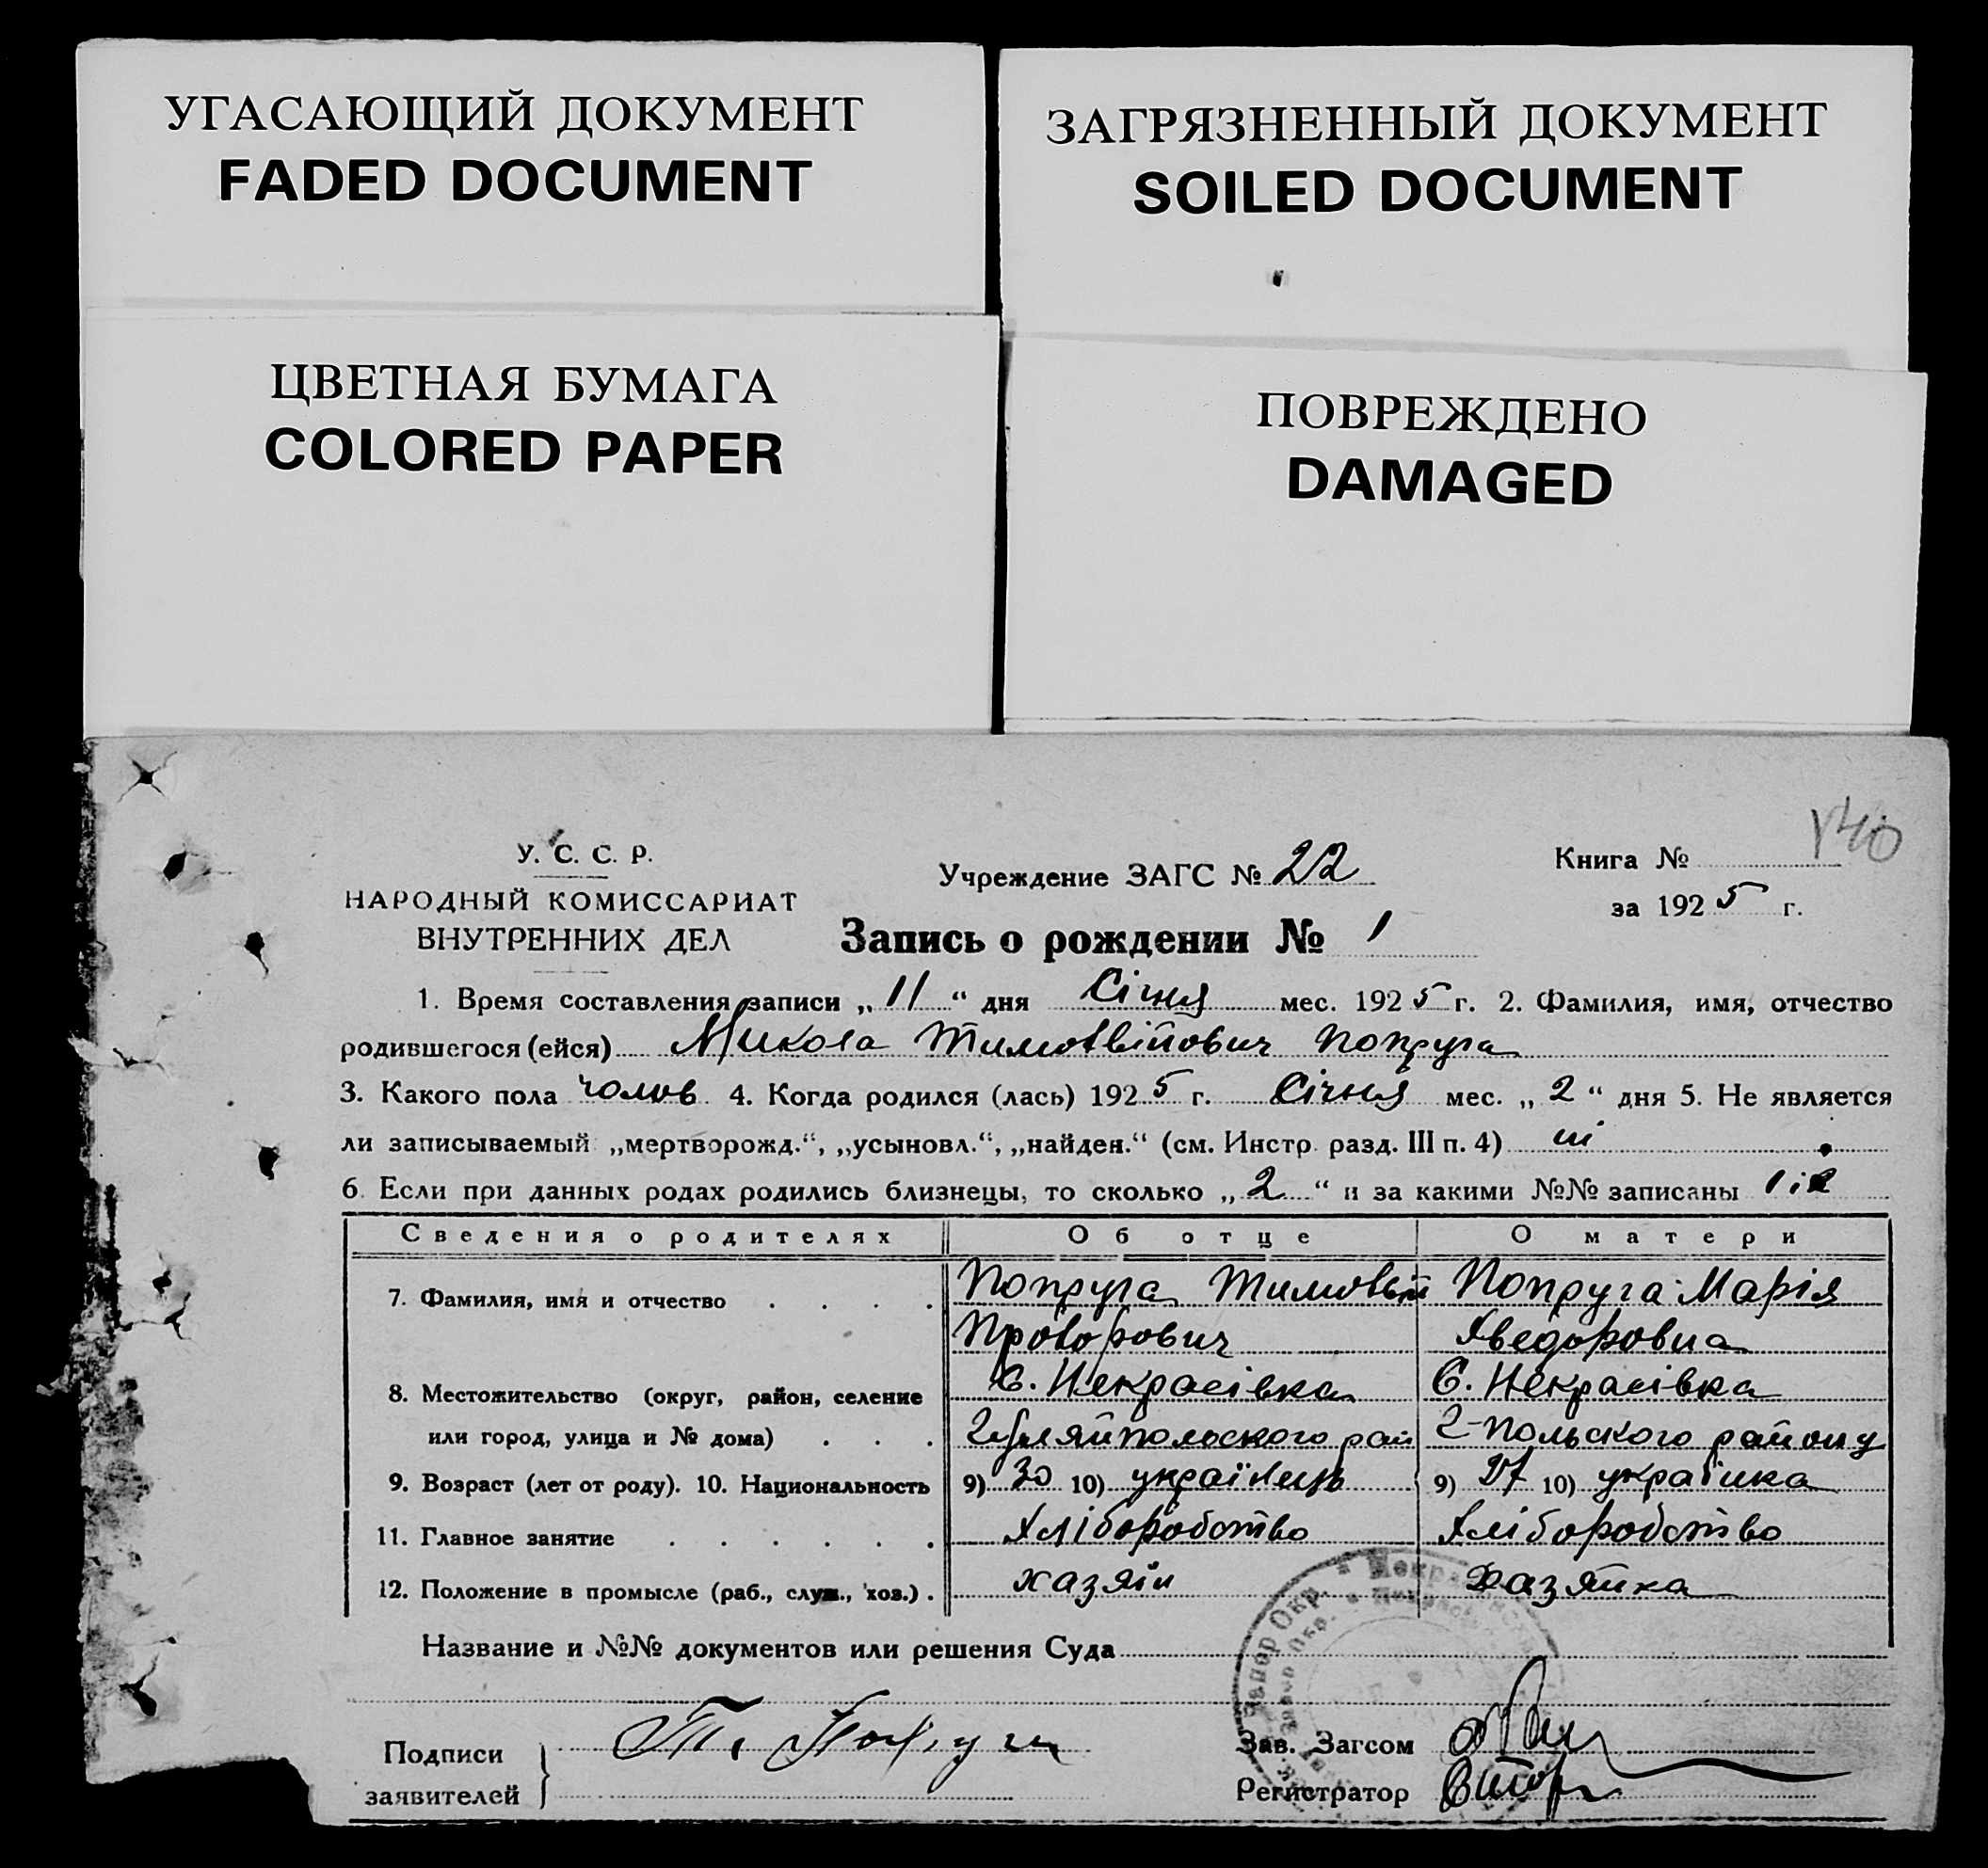 УГАСАЮЩИЙ ДОКУМЕНТ
FADED DOCUMENT
ЗАГРЯЗНЕННЫЙ ДОКУМЕНТ
SOILED DOCUMENT
ЦВЕТНАЯ БУМАГА
COLORED PAPER
ПОВРЕЖДЕНО
DAMAGED
140
У. С. С. Р.
НАРОДНЫЙ КОМИССАРИАТ
ВНУТРЕННИХ ДЕЛ
Учреждение ЗАГС № 22
Книга №
за 1925 г.
Запись о рождении № 1
1. Время составления записи „11“ дня Січня мес. 1925 г. 2. Фамилия, имя, отчество
родившегося (ейся) Микола Тимофвійович Попруга
3. Какого пола чолов 4. Когда родился (лась) 1925 г. Січня мес. „2“ дня 5. Не является
ли записываемый „мертворожд.“, „усыновл.“, „найден.“ (см. Инстр. разд. III п. 4) ні
6. Если при данных родах родились близнецы, то сколько „2“ и за какими №№ записаны 1 і 2
Сведения о родителях Об отце О матери
7. Фамилия, имя и отчество Попруга Попруга Марія
Прохорович Хведоровна
8. Местожительство (округ, район, селение С. Некрасівка С. Некрасівка
или город, улица и № дома) Гуляйпольского рай Г-Польского району
9. Возраст (лет от роду). 10. Национальность 9) 30 10) українець 9) 27 10) українка
11. Главное занятие Хліборобство Хліборобство
12. Положение в промысле (раб., служ., хоз.) хазяїн Хазяйка
Название и №№ документов или решения Суда
Подписи
заявителей
Т. Попруга
Зав. Загсом
Регистратор
Запор Окр.